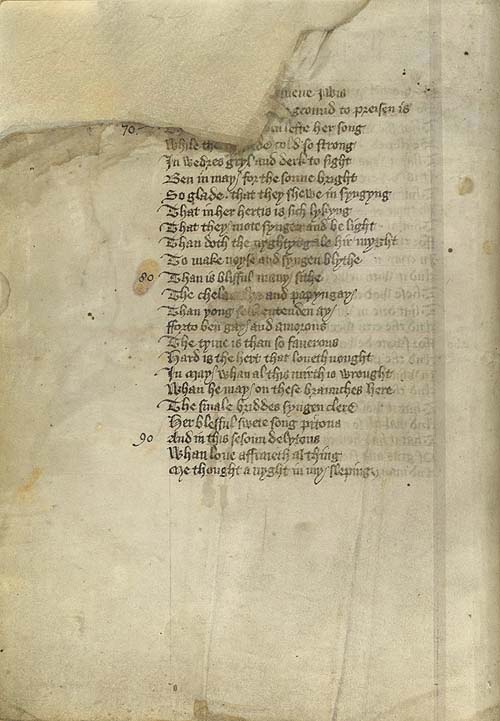 ground to preisen is
70. lefte her song
While the sold so strong
In wedres gryl and derk to sight
Ben in may for the sonne bright
So glade that they shewe in syngyng
That in her hertis is sich lykyng
That they mote syngen and be light
Than doth the nyghtyngale hir myght
To make noyse and syngen blythe
80 Than is blisful many sithe
The chela and papyngay
Than yong entenden ay
fforto ben gay and amorous
The tyme is than so saverous
Hard is the hert that loveth nought
In may whan al this mirth is wrought
Whan he may on these braunches here
The smale briddes syngen clere
Her blesful swete song pitous
90 And in this sesoun delytous
Whan love affraieth al thing
Me thought a nyght in my sleping